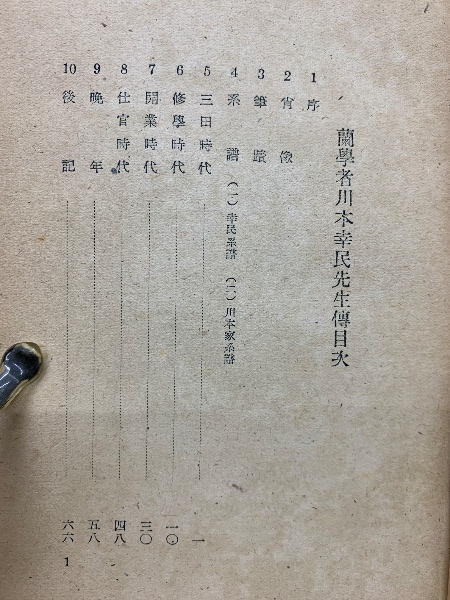 蘭學者川本幸民先生傳目次
1 序
2 肖像
3 筆蹟
4 系譜 (一)幸民系譜 (二)川本家系譜
5 三田時代 一
6 修學時代 一〇
7 開業時代 三〇
8 仕官時代 四八
9 晩年 五八
10 後記 六六
1